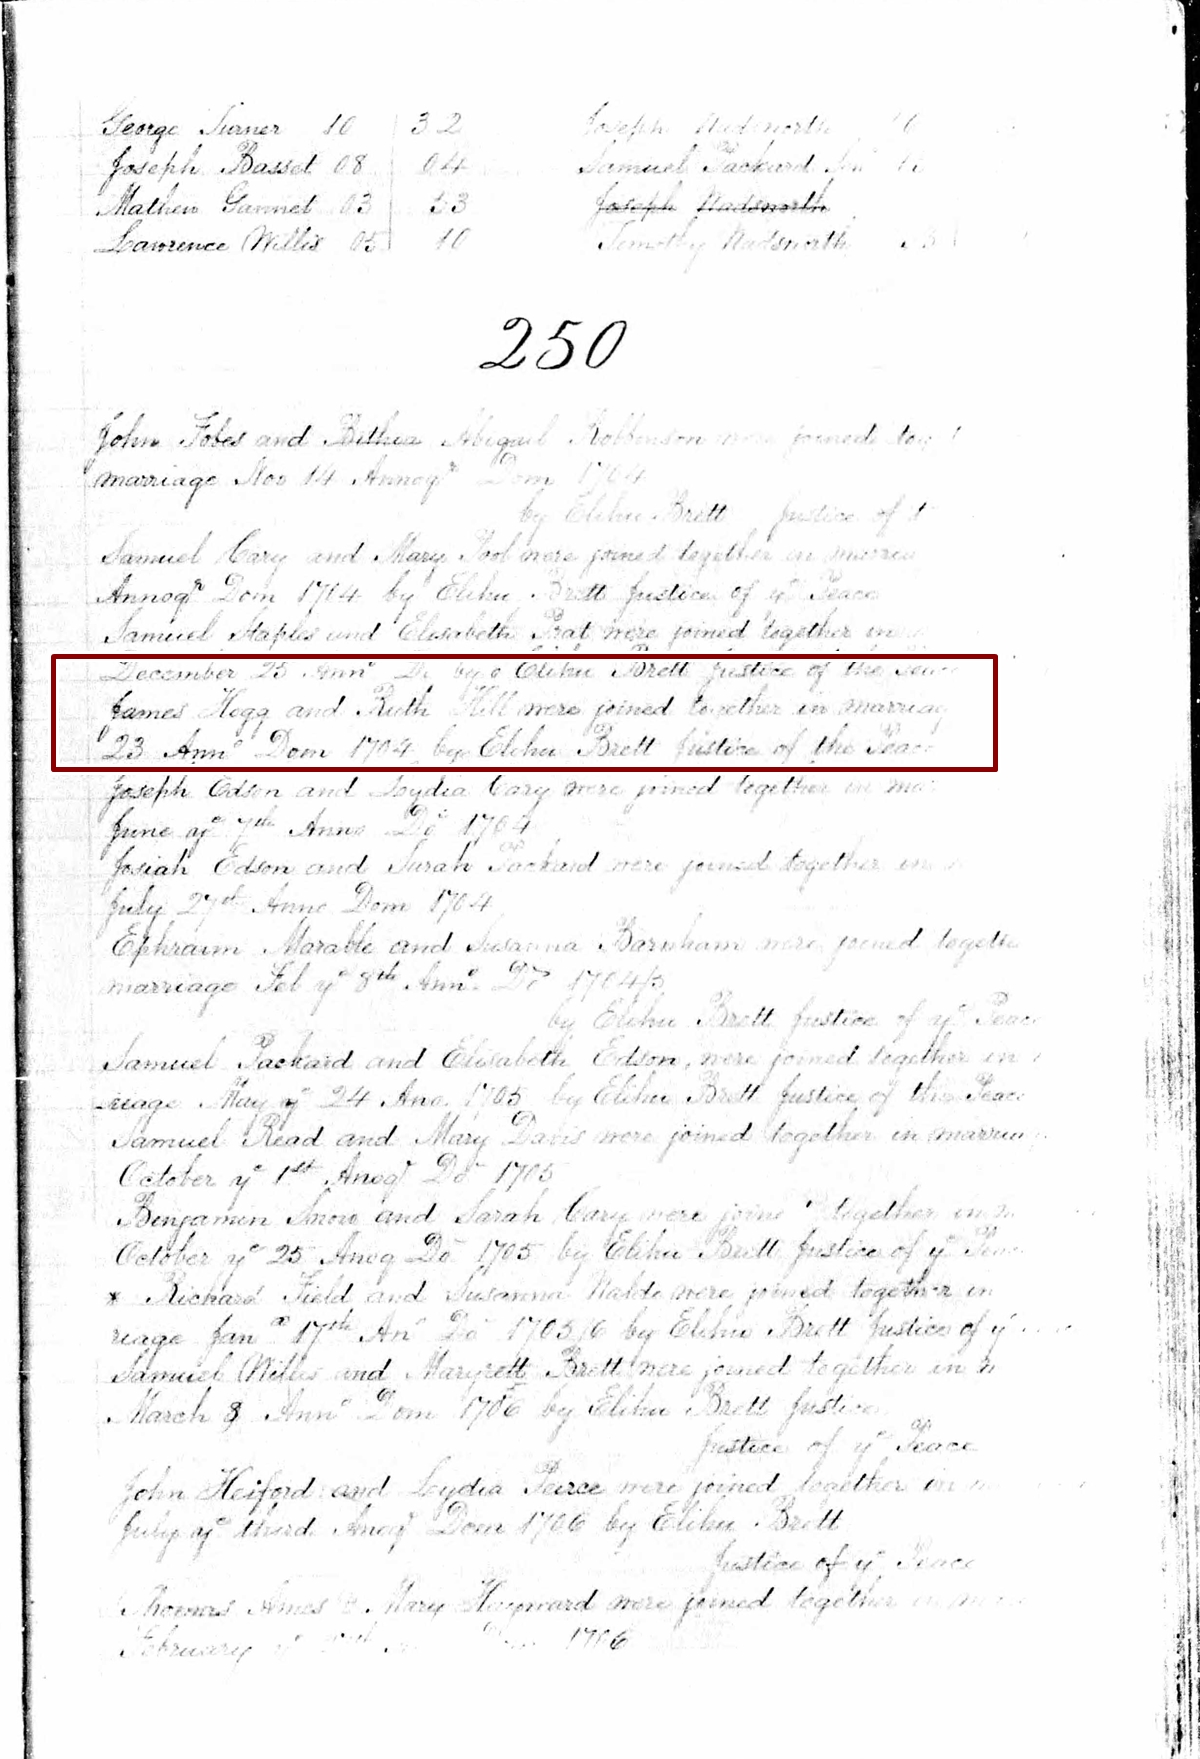 George Turner 10 32 Joseph Wadsworth
Joseph Basset 08 04 Samuel Packard
Mathew Gannet 03 33
Lawrence Willis 05 10 Timothy Wadsworth
250
John Fobes and Bithia Abigail Robbinson were joined
marriage Nov 14 Annoqr Dom 1704
by Elihu Brett Justice of
Samuel Cary and Mary Pool were joined together in
Annoqr Dom 1704 by Elihu Brett Justice of ye Peace
Samuel Staples and Elisabeth Prat were joined together in
December 25 Anno by Elihu Brett Justice of the
James Hegg and Ruth Hill were joined together in marriag
23 Anno Dom 1704 by Elihu Brett Justice of the Peac
Joseph Edson and Lydia Cary were joined together in
June ye 7th Anno Do 1704
Josiah Edson and Sarah Packard were joined together in
July 27st Anno Dom 1704
Ephraim Marable and Susanna Barnham were joined togeth
marriage Feb ye 8th Anno Do 1704/5
by Elihu Brett Justice of ye Peac
Samuel Packard and Elisabeth Edson were joined together in
riage May ye 24 Ano 1705 by Elihu Brett Justice of the Peace
Samuel Read and Mary Davis were joined together in marriag
October ye 1st Anoqr Do 1705
Benjamin Snow and Sarah Cary were joine together in
October ye 25 Anoq Do 1705 by Elihu Brett Justice of ye
* Richard Field and Susanna were joined together in
riage Jan 17th An Do 1705/6 by Elihu Brett Justice of y
Samuel Willis and Margrett Brett were joined together in
March 8 Anno Dom 1706 by Elihu Brett Justice
Justice of ye Peace
John Heiford and Lydia Peirce were joined together in
July ye third Anoqr Dom 1706 by Elihu Brett
Justice of ye Peace
Thomas Ames & Mary Hayward were joined together in
February 1706